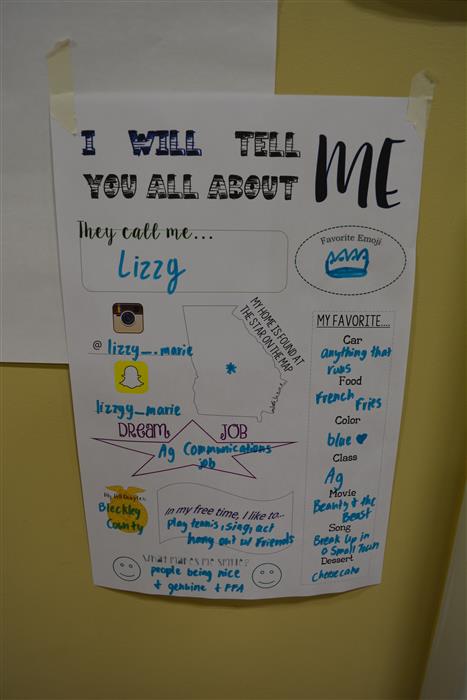 I WILL TELL
YOU ALL ABOUT
ME
They call me...
Lizzy
Favorite Emoji
@ lizzy_._marie
lizzgy_marie
MY HOME IS FOUND AT
THE STAR ON THE MAP
MY FAVORITE....
Car
anything that
runs
Food
French
Fries
Color
blue ♥
Class
Ag
Movie
Beauty & the
Beast
Song
Break Up in
a Small Town
Dessert
cheesecake
DREAM JOB
Ag Communications
job
Bleckley
County
In my free time, I like to...
Play tennis, sing, act
hang out w/ Friends
What makes me smile?
people being nice
+ genuine + FFA